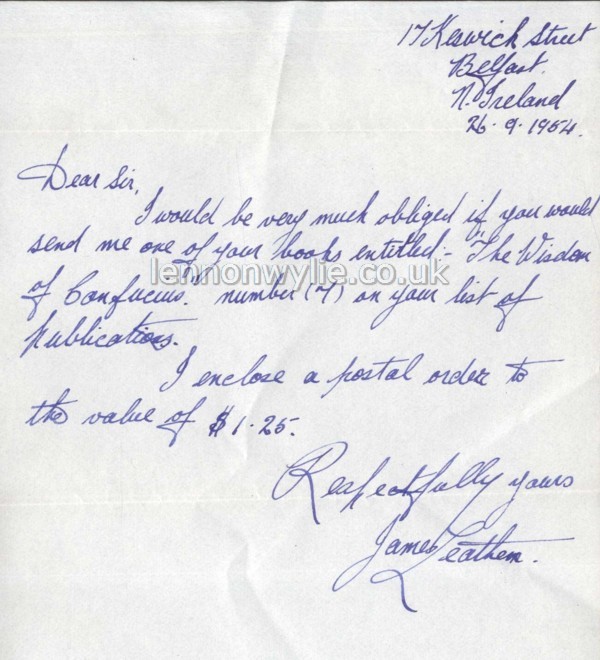 17 Keswick Street
Belfast.
N. Ireland
26.9.1954.
Dear Sir,
I would be very much obliged if you would
send me one of your books entitled:- "The Wisdom
lennonwylie.co.uk
of Confucius." number (7) on your list of
Publications.
I enclose a postal order to
the value of $1.25.
Respectfully yours
James Leathem.